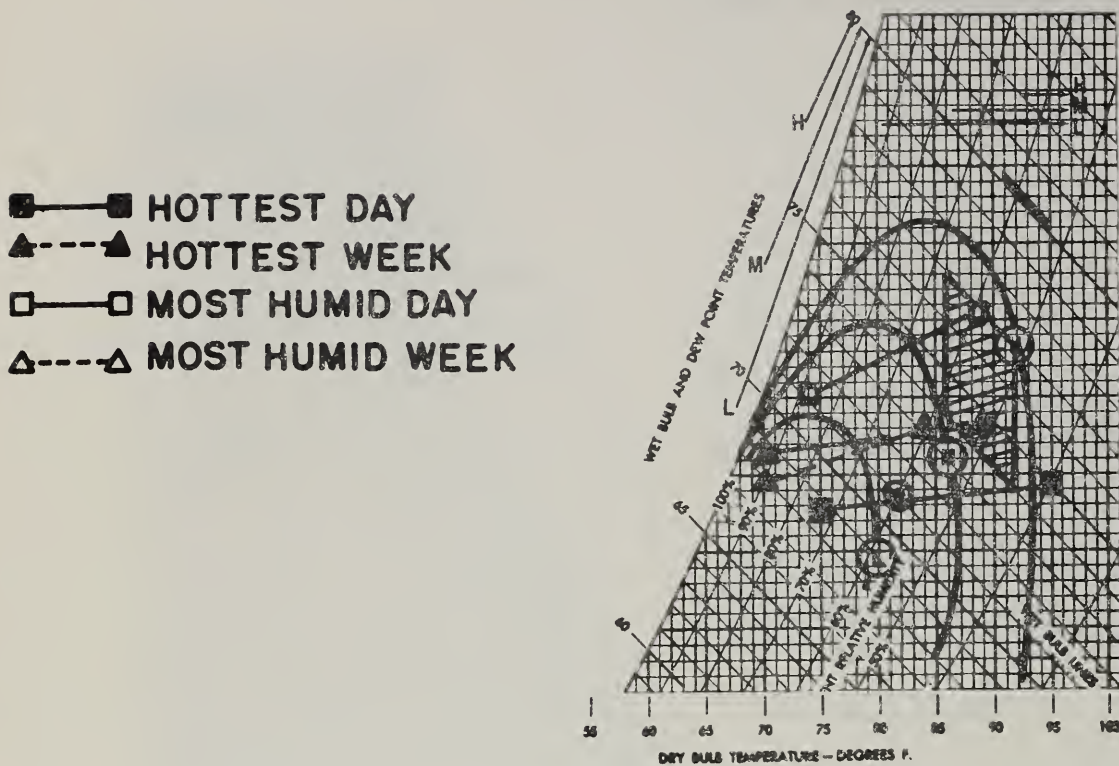 HOTTEST DAY
HOTTEST WEEK
MOST HUMID DAY
MOST HUMID WEEK
WET BULB AND DEW POINT TEMPERATURES
H
M
L
65
60
100%
90%
80%
70%
60%
50%
RELATIVE HUMIDITY
WET BULB LINES
55 60 65 70 75 80 85 90 95 105
DRY BULB TEMPERATURE — DEGREES F.